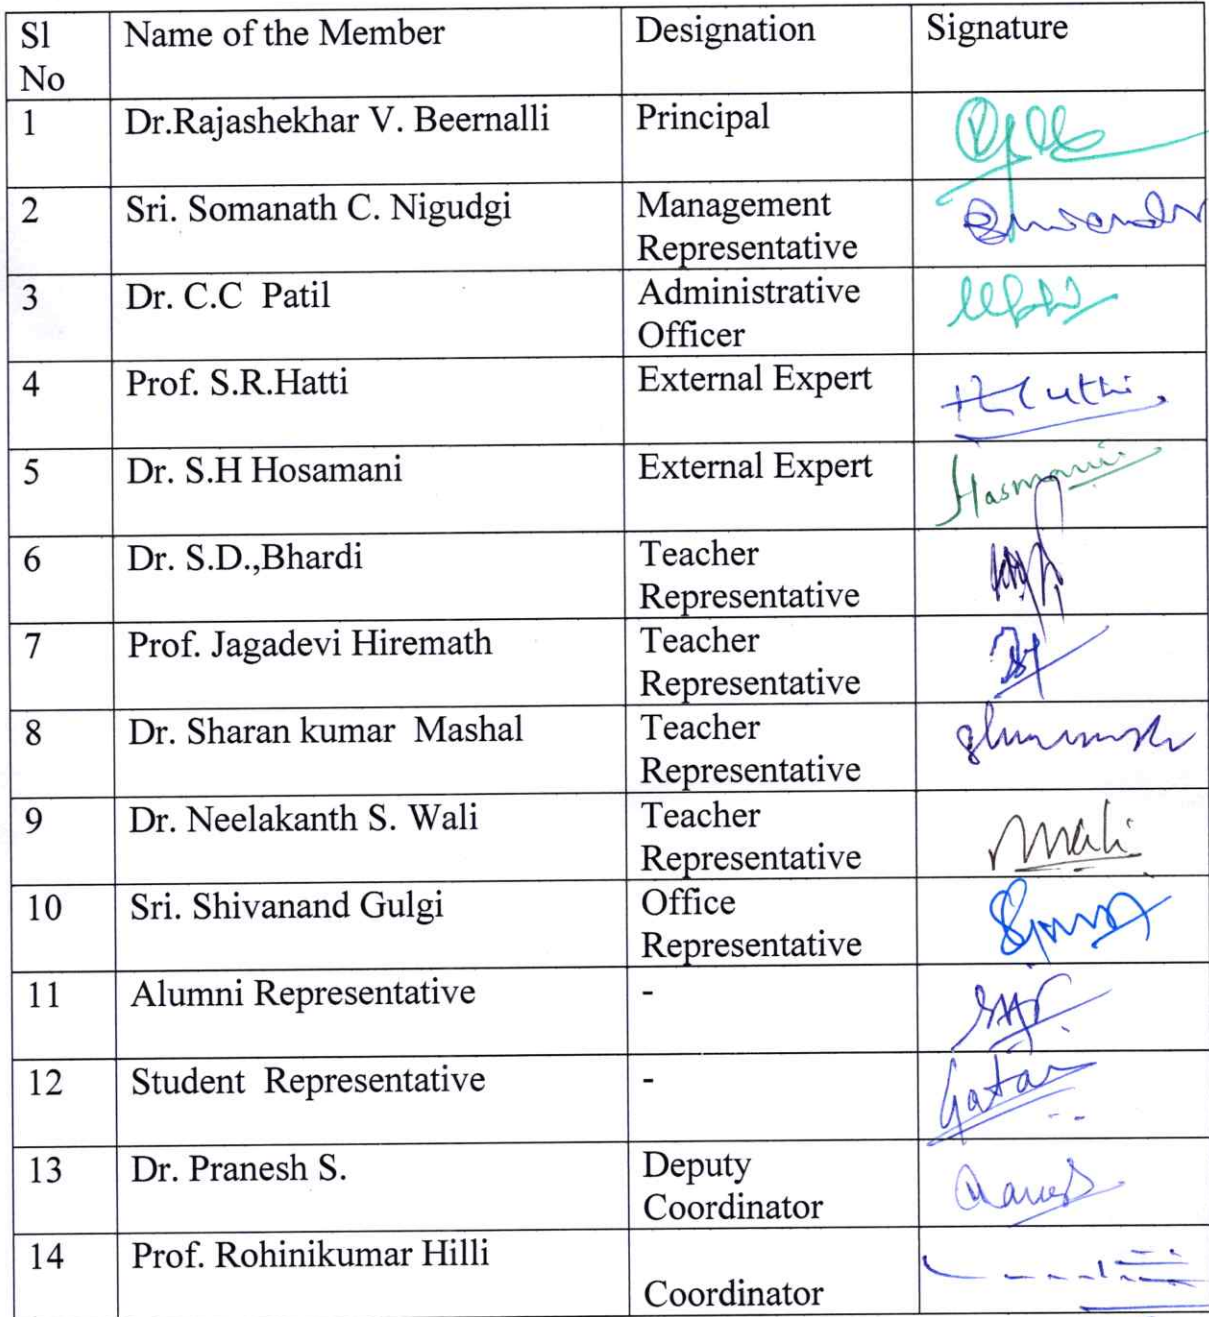 Sl No	Name of the Member	Designation	Signature
1	Dr.Rajashekhar V. Beernalli	Principal
2	Sri. Somanath C. Nigudgi	Management Representative
3	Dr. C.C Patil	Administrative Officer
4	Prof. S.R.Hatti	External Expert
5	Dr. S.H Hosamani	External Expert
6	Dr. S.D.,Bhardi	Teacher Representative
7	Prof. Jagadevi Hiremath	Teacher Representative
8	Dr. Sharan kumar Mashal	Teacher Representative
9	Dr. Neelakanth S. Wali	Teacher Representative
10	Sri. Shivanand Gulgi	Office Representative
11	Alumni Representative	-
12	Student Representative	-
13	Dr. Pranesh S.	Deputy Coordinator
14	Prof. Rohinikumar Hilli	Coordinator